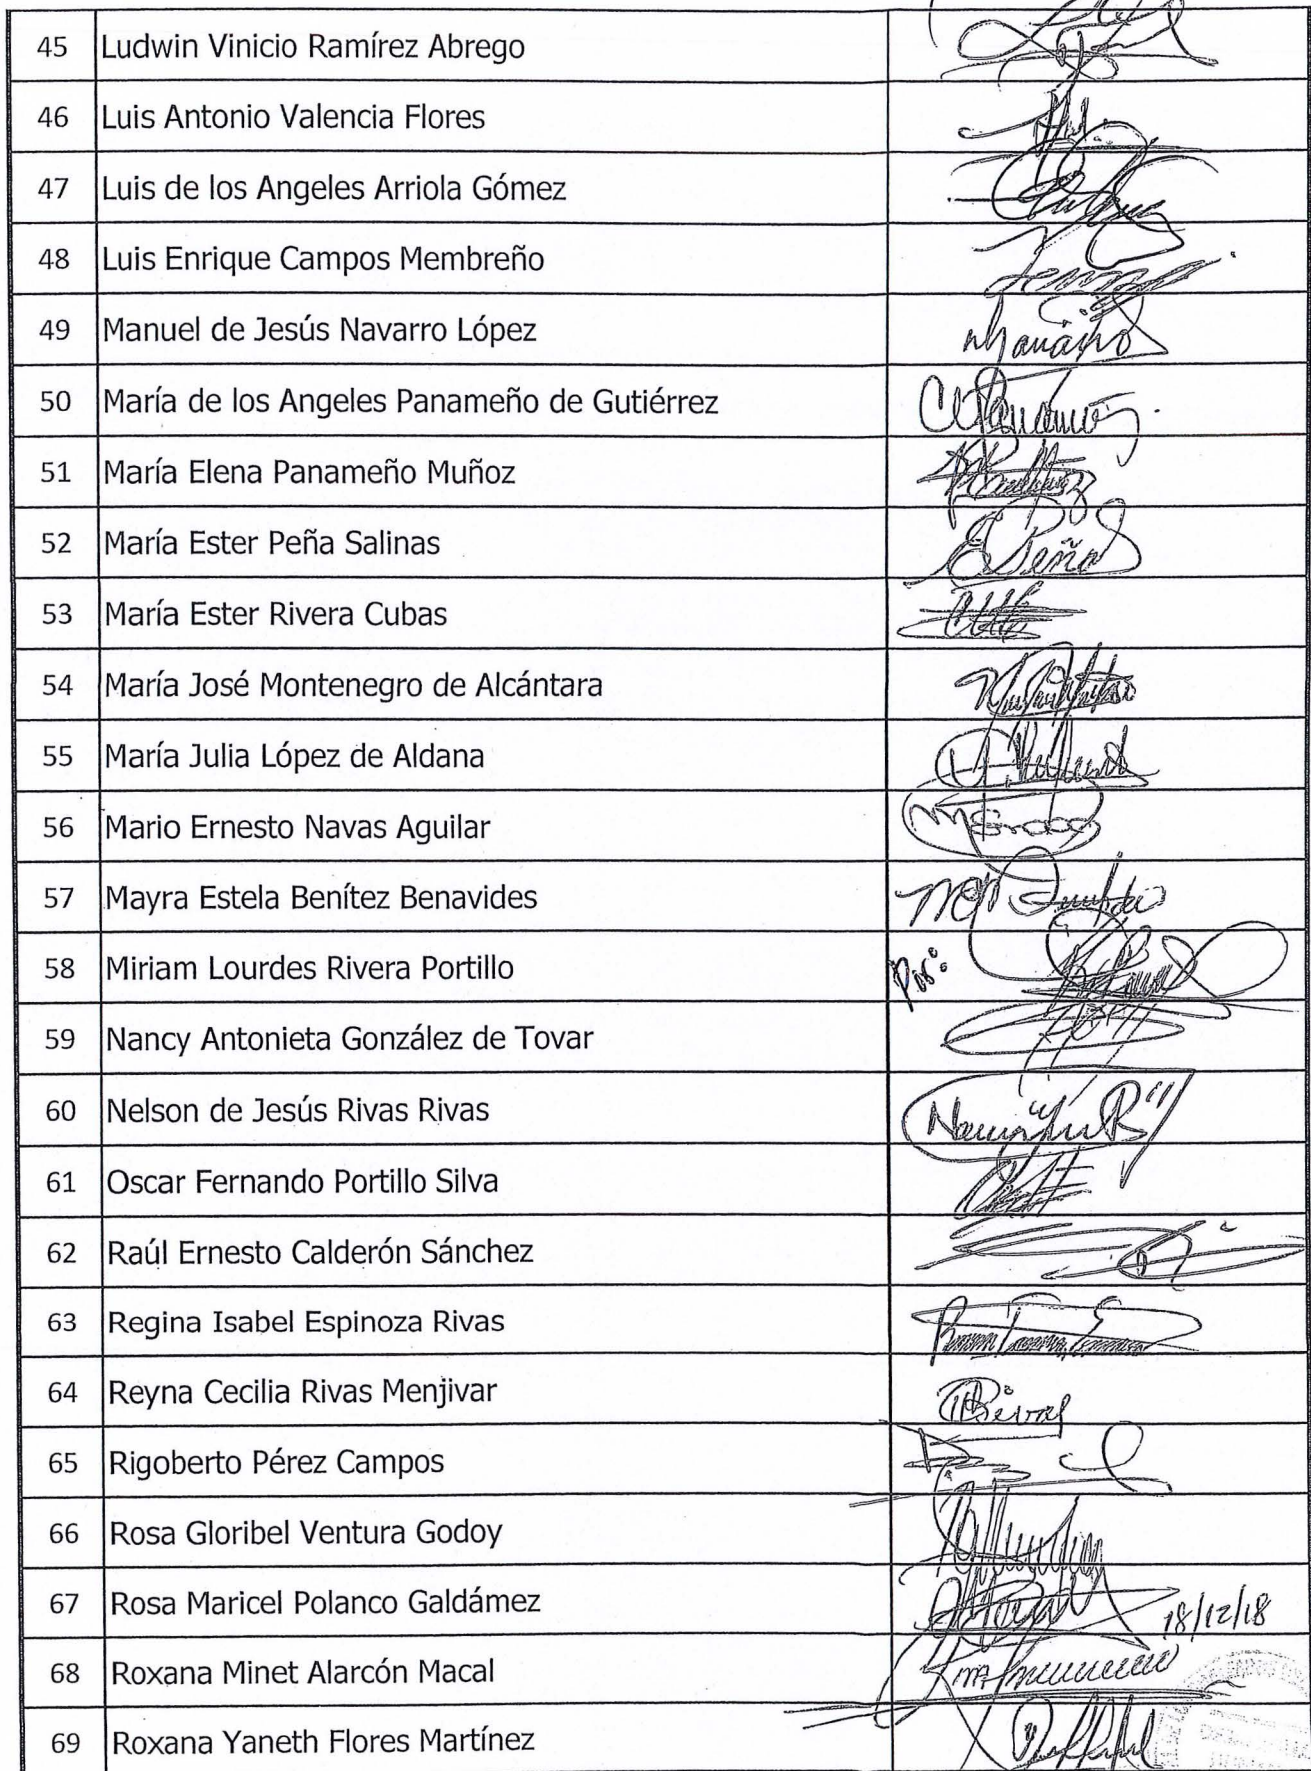 45 Ludwin Vinicio Ramírez Abrego
46 Luis Antonio Valencia Flores
47 Luis de los Angeles Arriola Gómez
48 Luis Enrique Campos Membreño
49 Manuel de Jesús Navarro López
50 María de los Angeles Panameño de Gutiérrez
51 María Elena Panameño Muñoz
52 María Ester Peña Salinas
53 María Ester Rivera Cubas
54 María José Montenegro de Alcántara
55 María Julia López de Aldana
56 Mario Ernesto Navas Aguilar
57 Mayra Estela Benítez Benavides
58 Miriam Lourdes Rivera Portillo Por:
59 Nancy Antonieta González de Tovar
60 Nelson de Jesús Rivas Rivas
61 Oscar Fernando Portillo Silva
62 Raúl Ernesto Calderón Sánchez
63 Regina Isabel Espinoza Rivas
64 Reyna Cecilia Rivas Menjivar
65 Rigoberto Pérez Campos
66 Rosa Gloribel Ventura Godoy
67 Rosa Maricel Polanco Galdámez 18/12/18
68 Roxana Minet Alarcón Macal
69 Roxana Yaneth Flores Martínez